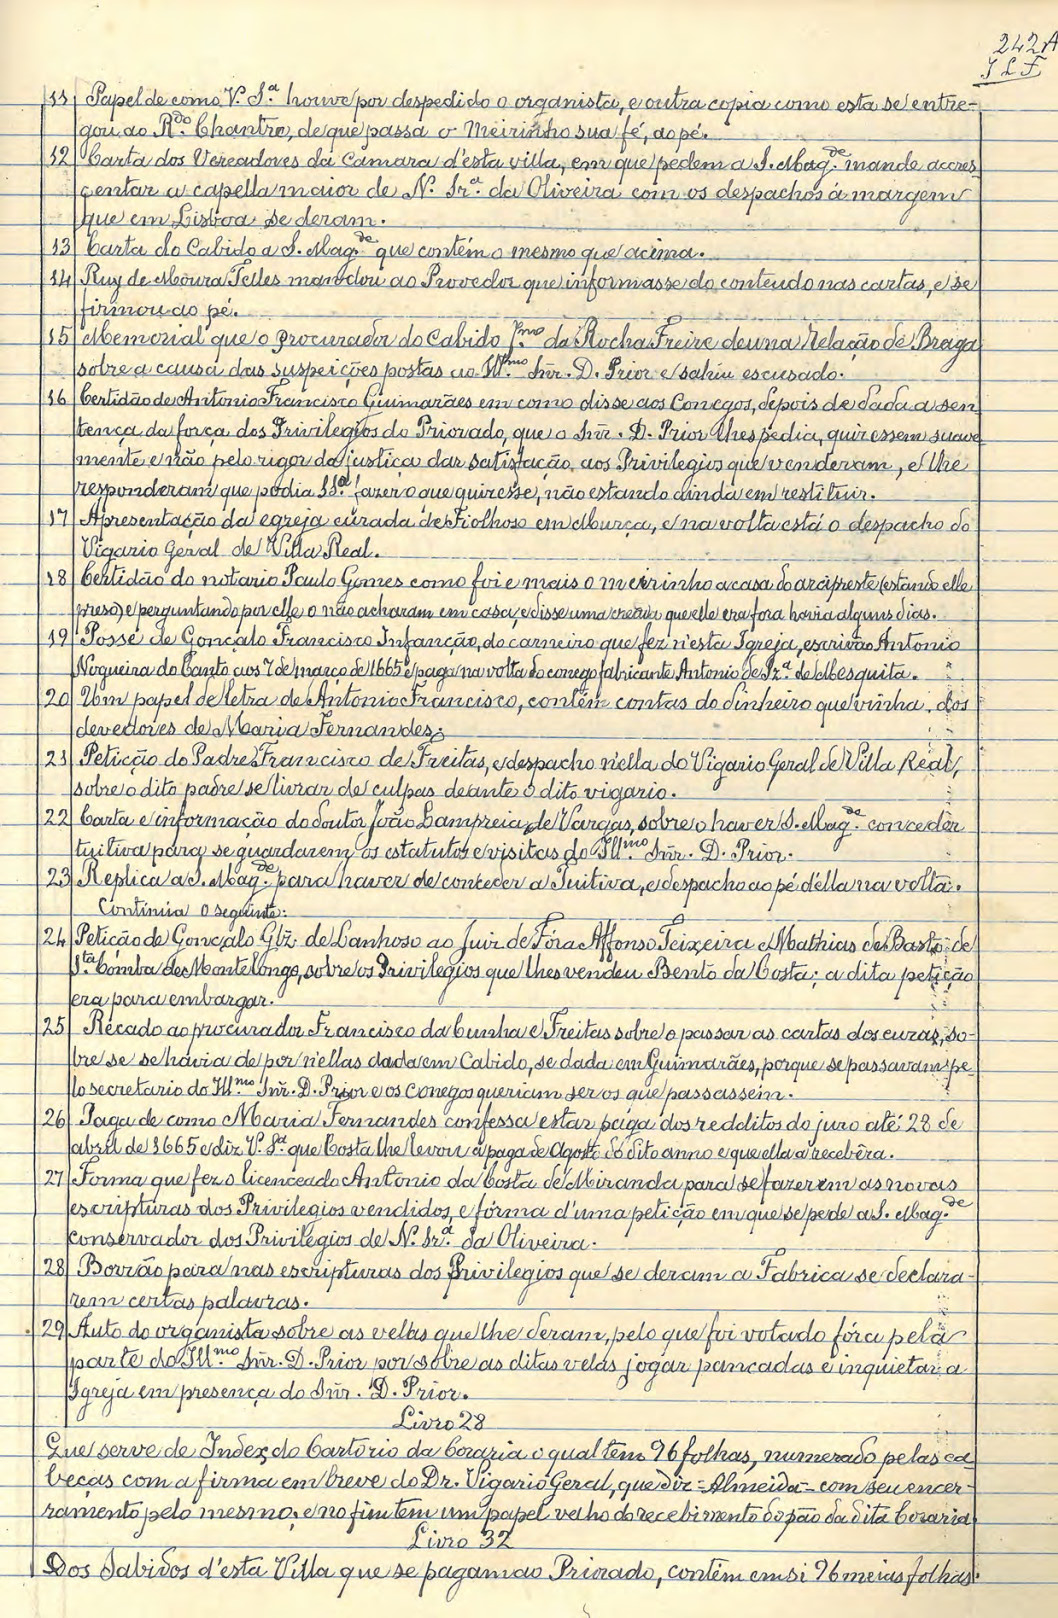 242A
J L F
11 Papel de como V. S.ª houve por despedido o organista, e outra copia como esta se entre-
gou ao R.do Chantre, de que passa o Meirinho sua fé, ao pé.
12 Carta dos Vereadores da Camara d'esta villa, em que pedem a S. Mag.de mande accres
centar a capella maior de N. Sr.ª da Oliveira com os despachos á margem
que em Lisboa se deram.
13 Carta do Cabido a S. Mag.de que contém o mesmo que acima.
14 Ruy de Moura Telles mandou ao Provedor que informasse do conteudo nas cartas, e se
firmou ao pé.
15 Memorial que o procurador do Cabido J.mo da Rocha Freire deu na Relação de Braga
sobre a causa das suspeições postas ao Ill.mo Snr. D. Prior e sahiu escusado.
16 Certidão de Antonio Francisco Guimarães em como disse aos Conegos, depois de dada a sen
tença da força dos Privilegios do Priorado, que o Snr. D. Prior lhes pedia, quizessem suave
mente e não pelo rigor da justiça dar satisfação aos Privilegios que venderam, e lhe
responderam que podia S.S.ª fazer o que quizesse, não estando ainda em restituir.
17 Apresentação da egreja curada de Fiolhoso em Murça, e na volta está o despacho do
Vigario Geral de Villa Real.
18 Certidão do notario Paulo Gomes como foi e mais o meirinho a casa do arcipreste (estando elle
preso) e perguntando por elle o não acharam em casa, e disse uma creada que elle era fora havia alguns dias.
19 Posse de Gonçalo Francisco Infanção, do carneiro que fez n'esta Igreja, escrivão Antonio
Nogueira do Canto aos 7 de março de 1665 e paga na volta do conego fabricante Antonio de Sz.ª de Mesquita.
20 Um papel de letra de Antonio Francisco, contém contas do dinheiro que vinha dos
devedores de Maria Fernandes;
21 Petição do Padre Francisco de Freitas, e despacho n'ella do Vigario Geral de Villa Real,
sobre o dito padre se livrar de culpas deante o dito vigario.
22 Carta e informação do doutor João Lampreia de Vargas, sobre o haver S. Mag.de conceder
tuitiva para se guardarem os estatutos e visitas do Ill.mo Snr. D. Prior.
23 Replica a S. Mag.de para haver de conceder a Tuitiva, e despacho ao pé d'ella na volta.
Continúa o seguinte:
24 Petição de Gonçalo Glz de Lanhoso ao Juiz de Fóra Affonso Teixeira e Mathias de Basto de
S.ta Comba de Montelongo, sobre os Privilegios que lhes vendeu Bento da Costa; a dita petição
era para embargar.
25 Recado ao procurador Francisco da Cunha e Freitas sobre o passar as cartas dos curas, so-
bre se se havia de por n'ellas dada em Cabido, se dada em Guimarães, porque se passavam pe-
lo secretario do Ill.mo Snr. D. Prior e os Conegos queriam ser os que passassem.
26 Paga de como Maria Fernandes confessa estar paga dos redditos do juro até 28 de
abril de 1665 e diz V. S.ª que Costa lhe levou a paga de Agosto do dito anno e que ella a recebêra.
27 Forma que fez o licenceado Antonio da Costa de Miranda para se fazerem as novas
escripturas dos Privilegios vendidos, e fórma d'uma petição em que se pede a S. Mag.de
conservador dos Privilegios de N. Sr.ª da Oliveira.
28 Borrão para nas escripturas dos Privilegios que se deram a Fabrica se declara-
rem certas palavras.
29 Auto do organista sobre as vellas que lhe deram, pelo que foi votado fóra pela
parte do Ill.mo Snr. D. Prior por sobre as ditas velas jogar pancadas e inquietar a
Igreja em presença do Snr. D. Prior.
Livro 28
Que serve de Index do Cartorio da Coraria o qual tem 96 folhas, numerado pelas ca-
beças com a firma em breve do Dr. Vigario Geral, que diz = Almeida = com seu encer-
ramento pelo mesmo, e no fim tem um papel velho do recebimento do pão da dita Coraria
Livro 32
Dos Sabidos d'esta Villa que se pagam ao Priorado, contém em si 96 meias folhas.